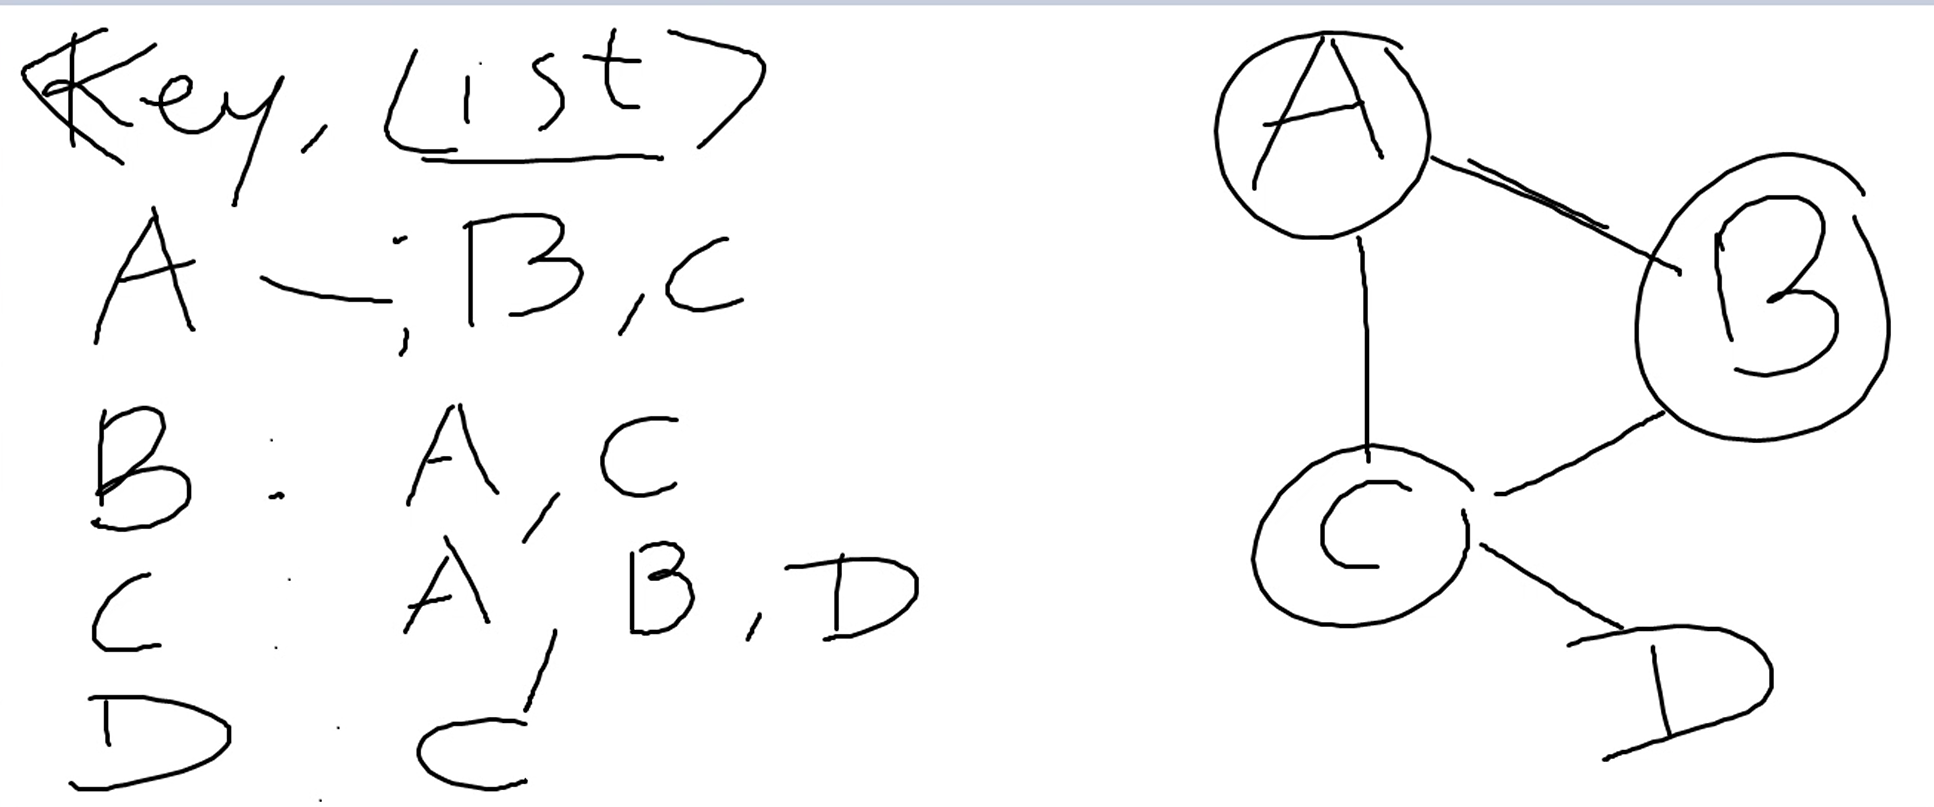 <Key, List>
A —: B, C
B : A, C
C : A, B, D
D : C
A
B
C
D